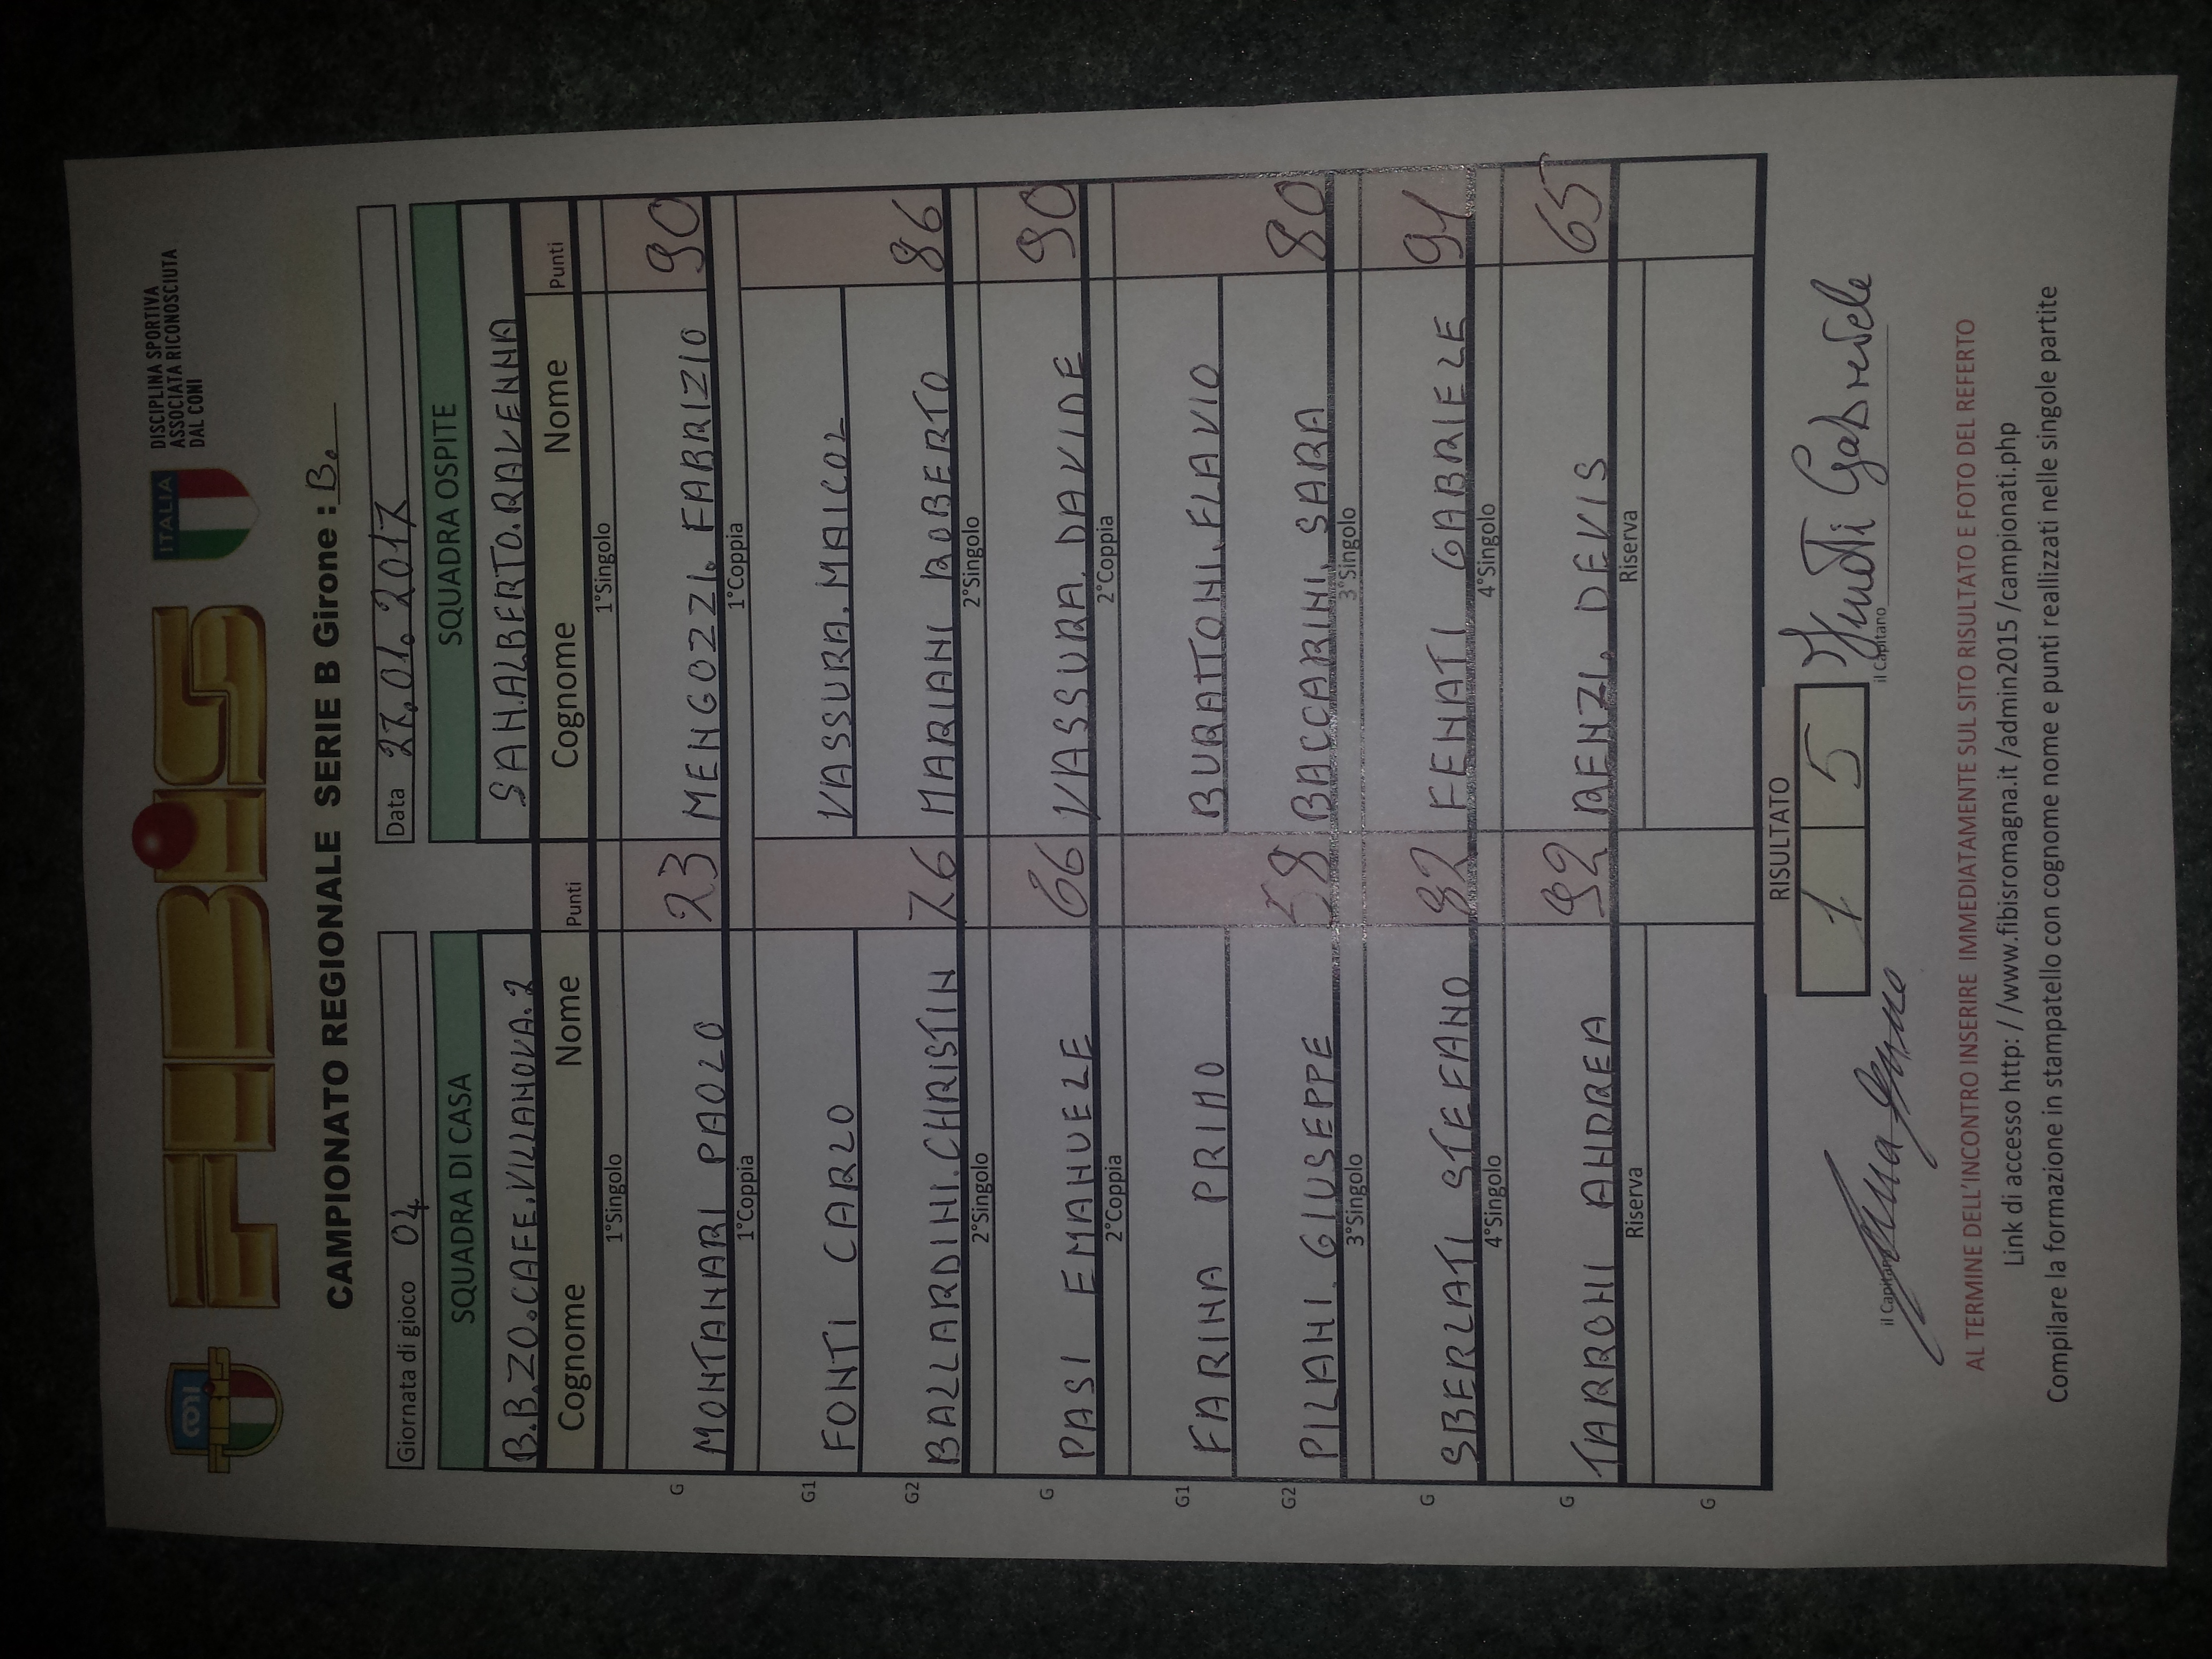 CONI
FIBIS
FIBiS
ITALIA
DISCIPLINA SPORTIVA
ASSOCIATA RICONOSCIUTA
DAL CONI
CAMPIONATO REGIONALE SERIE B Girone : B.
Giornata di gioco 04 Data 27.01.2017
SQUADRA DI CASA SQUADRA OSPITE
B.B.ZO.CAFE.VILLANOVA.2 SAN.ALBERTO.RAVENNA
Cognome Nome Punti Cognome Nome Punti
1°Singolo 1°Singolo
G MONTANARI PAOLO 23 MENGOZZI. FABRIZIO 90
1°Coppia 1°Coppia
G1 FONTI CARLO VASSURA. MAICOL
G2 BALLARDINI.CHRISTIN 76 MARIANI ROBERTO 86
2°Singolo 2°Singolo
G PASI EMANUELE 66 VASSURA. DAVIDE 90
2°Coppia 2°Coppia
G1 FARINA PRIMO BURATTONI. FLAVIO
G2 PILANI. GIUSEPPE 58 BACCARINI. SARA 80
3°Singolo 3°Singolo
G SBERLATI STEFANO 82 FENATI GABRIELE 91
4°Singolo 4°Singolo
G TARRONI ANDREA 92 RENZI. DEVIS 65
Riserva Riserva
G
RISULTATO
1 5
il Capitano il Capitano Gabriele
AL TERMINE DELL'INCONTRO INSERIRE IMMEDIATAMENTE SUL SITO RISULTATO E FOTO DEL REFERTO
Link di accesso http: / /www.fibisromagna.it /admin2015 /campionati.php
Compilare la formazione in stampatello con cognome nome e punti reallizzati nelle singole partite